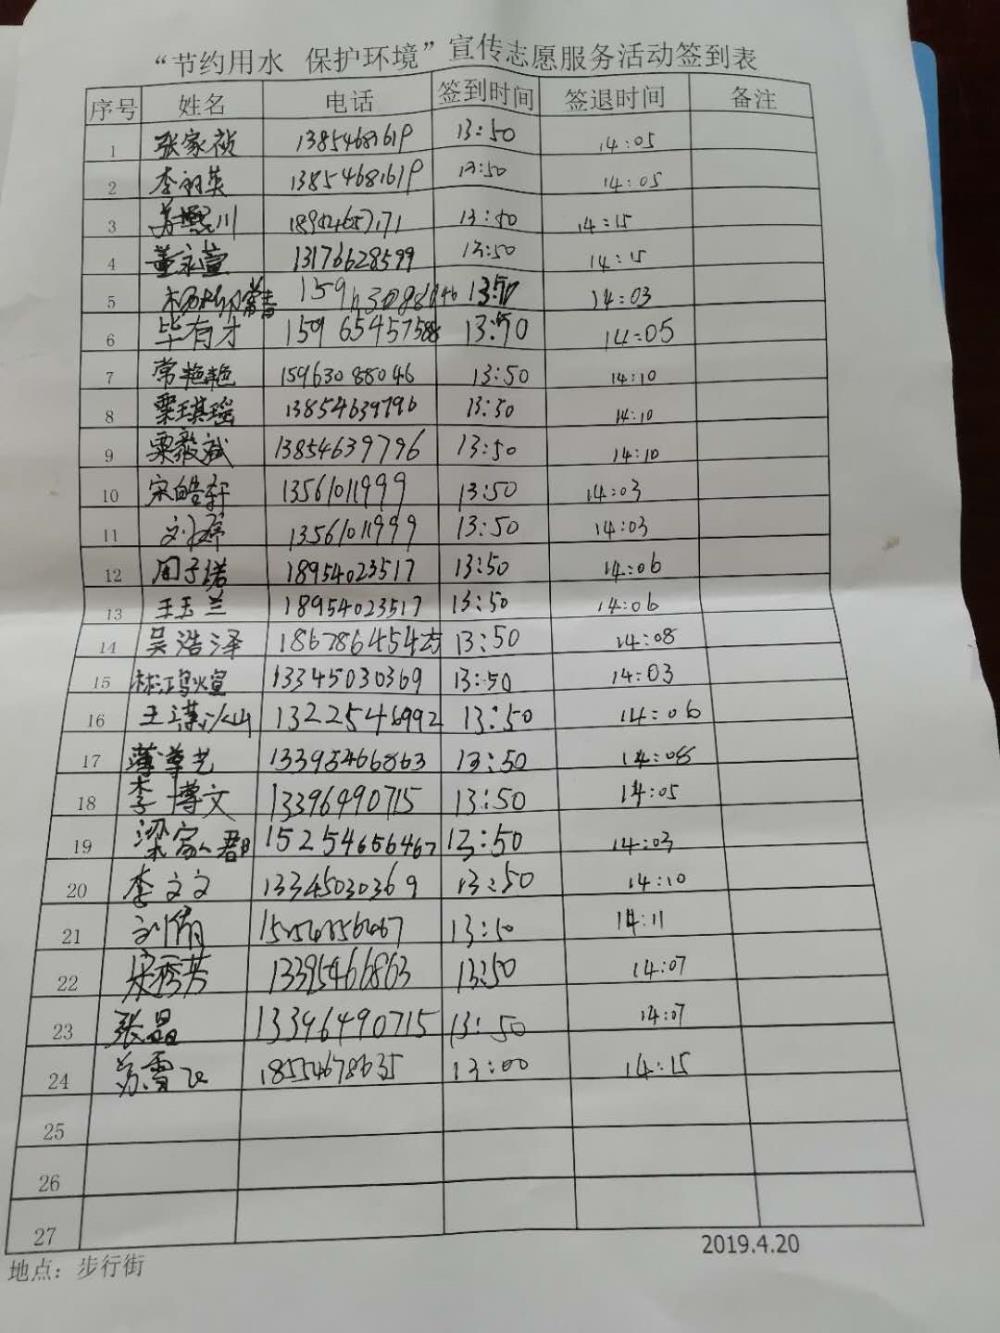 “节约用水 保护环境”宣传志愿服务活动签到表
序号 姓名 电话 签到时间 签退时间 备注
1 张家祯 13854681619 13:50 14:05
2 李羽英 13854681619 13:50 14:05
3 13:50 14:15
4 董永萱 13176628599 13:50 14:15
5 14:03
6 毕有才 14:05
7 常艳艳 15963088046 13:50 14:10
8 栗琪瑶 13854639796 13:50 14:10
9 栗毅斌 13854639796 13:50 14:10
10 宋皓轩 13561011999 13:50 14:03
11 13561011999 13:50 14:03
12 周子诺 18954023517 13:50 14:06
13 王玉兰 18954023517 13:50 14:06
14 吴浩泽 13:50 14:08
15 林鸿煊 13345030369 13:50 14:03
16 13:50 14:06
17 薄尊艺 13395466863 13:50 14:08
18 李博文 13396490715 13:50 14:05
19 梁家群 15254656467 13:50 14:03
20 李文文 13345030369 13:50 14:10
21 刘倩 13:50 14:11
22 宋秀芳 13395466863 13:50 14:07
23 张晶 13396490715 13:50 14:07
24 苏雪飞 18554678635 13:00 14:15
25
26
27
2019.4.20
地点：步行街